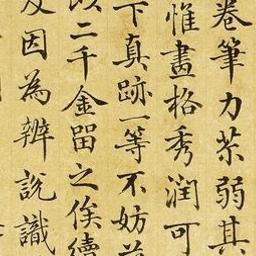 卷筆力荼弱其
惟畫格秀潤可
下真跡一等不妨
二千金留之俟續
因為辨說識